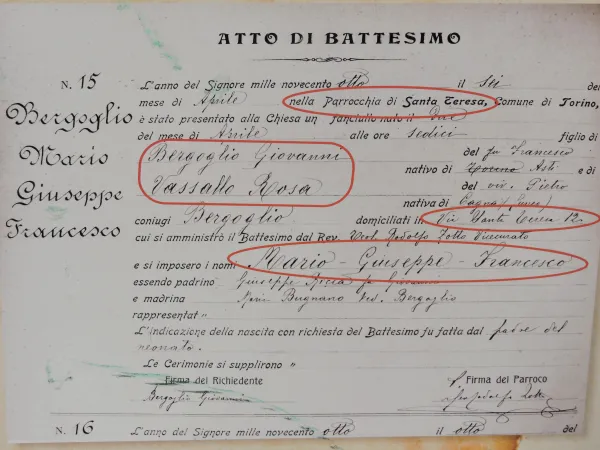 ATTO DI BATTESIMO
N. 15
Bergoglio
Mario
Giuseppe
Francesco
L'anno del Signore mille novecento otto il sei del
mese di Aprile nella Parrocchia di Santa Teresa, Comune di Torino,
è stato presentato alla Chiesa un fanciullo nato il Due
del mese di Aprile alle ore sedici figlio di
Bergoglio Giovanni del fu Francesco
nativo di Torino Asti e di
Vassallo Rosa del viv. Pietro
nativa di
coniugi Bergoglio domiciliati in Via Santa Teresa 12
cui si amministrò il Battesimo dal Rev. Rodolfo Vicecurato
e si imposero i nomi Mario - Giuseppe - Francesco
essendo padrino Giuseppe fu Giovanni
e madrina Maria Bugnano Bergoglio
rappresentat "
L'indicazione della nascita con richiesta del Battesimo fu fatta dal padre del
neonato.
Le Cerimonie si supplirono "
Firma del Richiedente
Bergoglio Giovanni
Firma del Parroco
N. 16 L'anno del Signore mille novecento otto il otto del